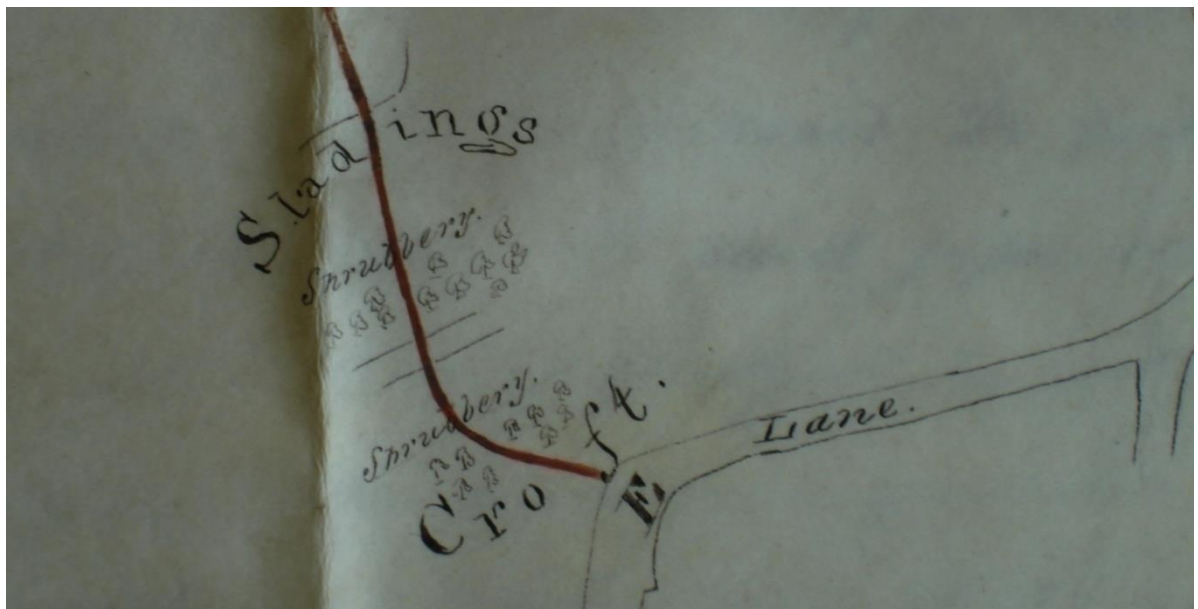 Sladings
Shrubbery.
Shrubbery.
Croft.
E
Lane.